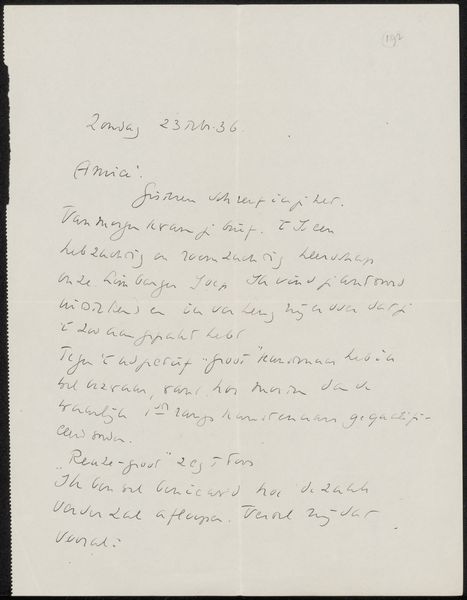 192
Zondag 23 Febr. 36.
Amice.
Gisteren schreef ik je het.
Van morgen kwam je brief. 't Is een
hebzachtig en roemzuchtig heerschap
onze Limburger Joep Ik vind je antwoord
uitstekend en ik verheug mij er over dat je
't zoo aangepakt hebt
Tegen 't adjectief "groot" kunstenaar heb ik
wel bezwaar, want hoe moeten dan de
waarlijk 1en rangs kunstenaars gequalifi-
ceerd worden.
"Reuze-groot" zegt Toos
Ik ben wel benieuwd hoe de zaak
verder zal afloopen. Vertel mij dat
vooral: